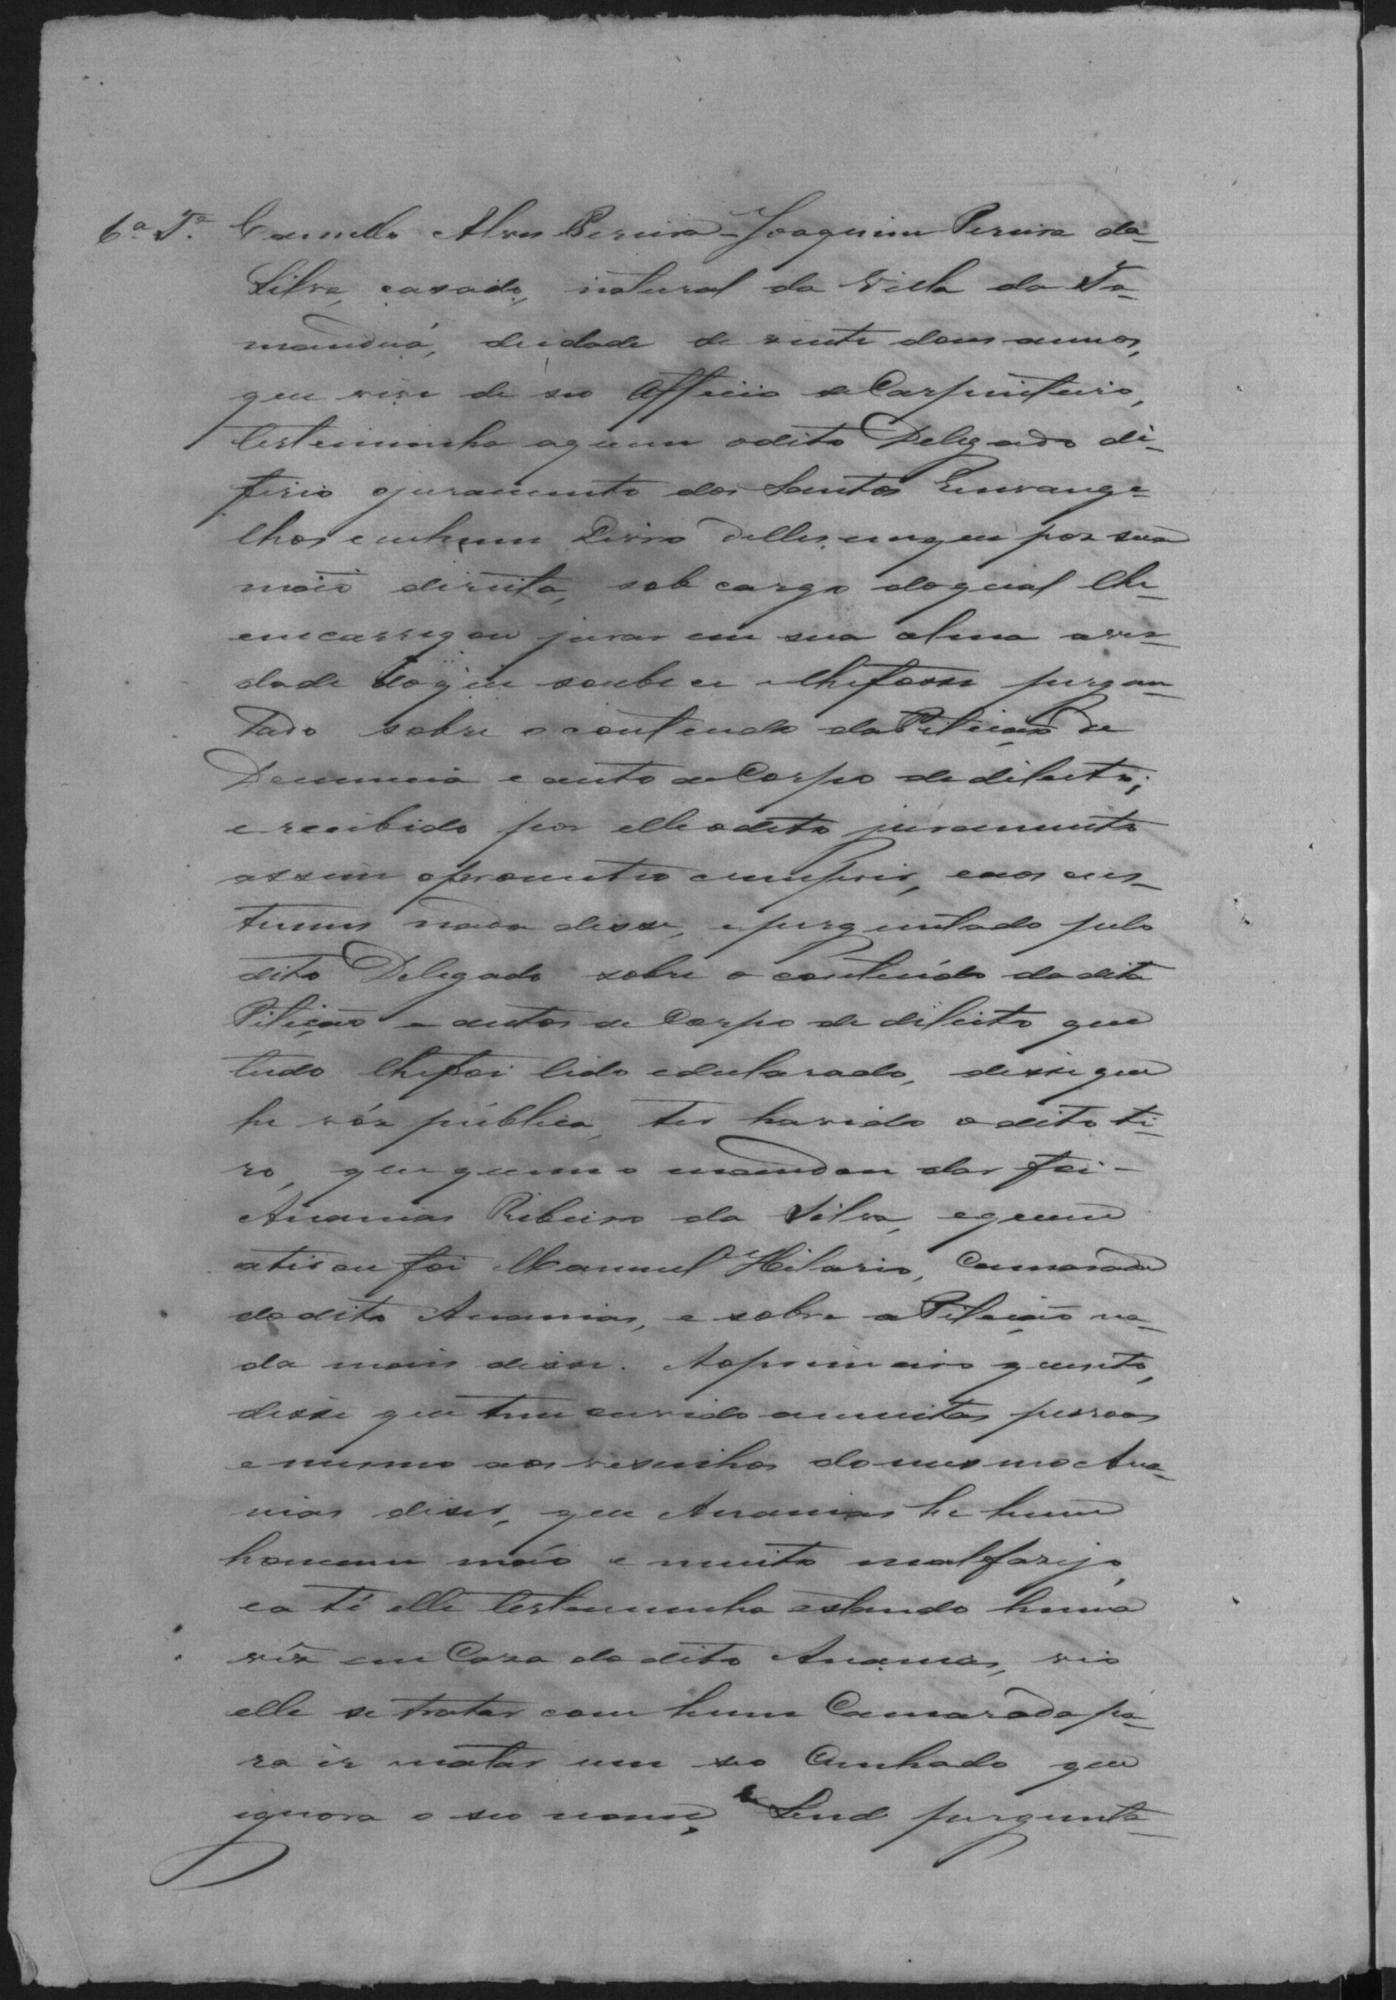 6.ª T.ª Camillo Alves Pereira - Joaquim Pereira da
Silva, casado, natural da Villa do Ta-
manduá, de idade de vinte dous annos,
que vive de seo Officio de Carpinteiro,
testeminha aquem odito Delegado di-
ferio ojuramento dos Santos Emvange-
lhos emhum Livro delles emque pos sua
mão direita, sob cargo doqual lhe-
emcarregou jurar em sua alma aver-
dade doque soubece elhefosse pergun-
tado sobre o contendo daPitição de
Denuncia e auto de Corpo de dilicto;
erecibido por elle odito juramento
assim oprometeo cumprir, eaos cus-
tumes nada disse, eperguntado pelo
dito Delegado sobre o contiúdo dadita
Pitição e autos de Corpo de dilicto que
tudo lhefoi lido edeclarado, disse que
he vós pública, ter havido o dito ti-
ro, que quem o mandou dar foi -
Ananias Ribeiro da Silva, equem
atirou foi Manuel Hilario, Camarada
dodito Ananias, e sobre aPitição na-
da mais disse. Aoprimeiro quesito,
disse que tem ouvido amuitas pessoas
emesmo aos vesinhos domesmo Ana-
nias diser, que Ananias he hum
homem máo e muito malfazejo,
eaté elle testeminha estando huma
vêz em Caza dodito Ananias, vio
elle se tratar com hum Camarada pa-
ra ir matar um seo Cunhado que
ignora o seo nome, e Send pergunta-